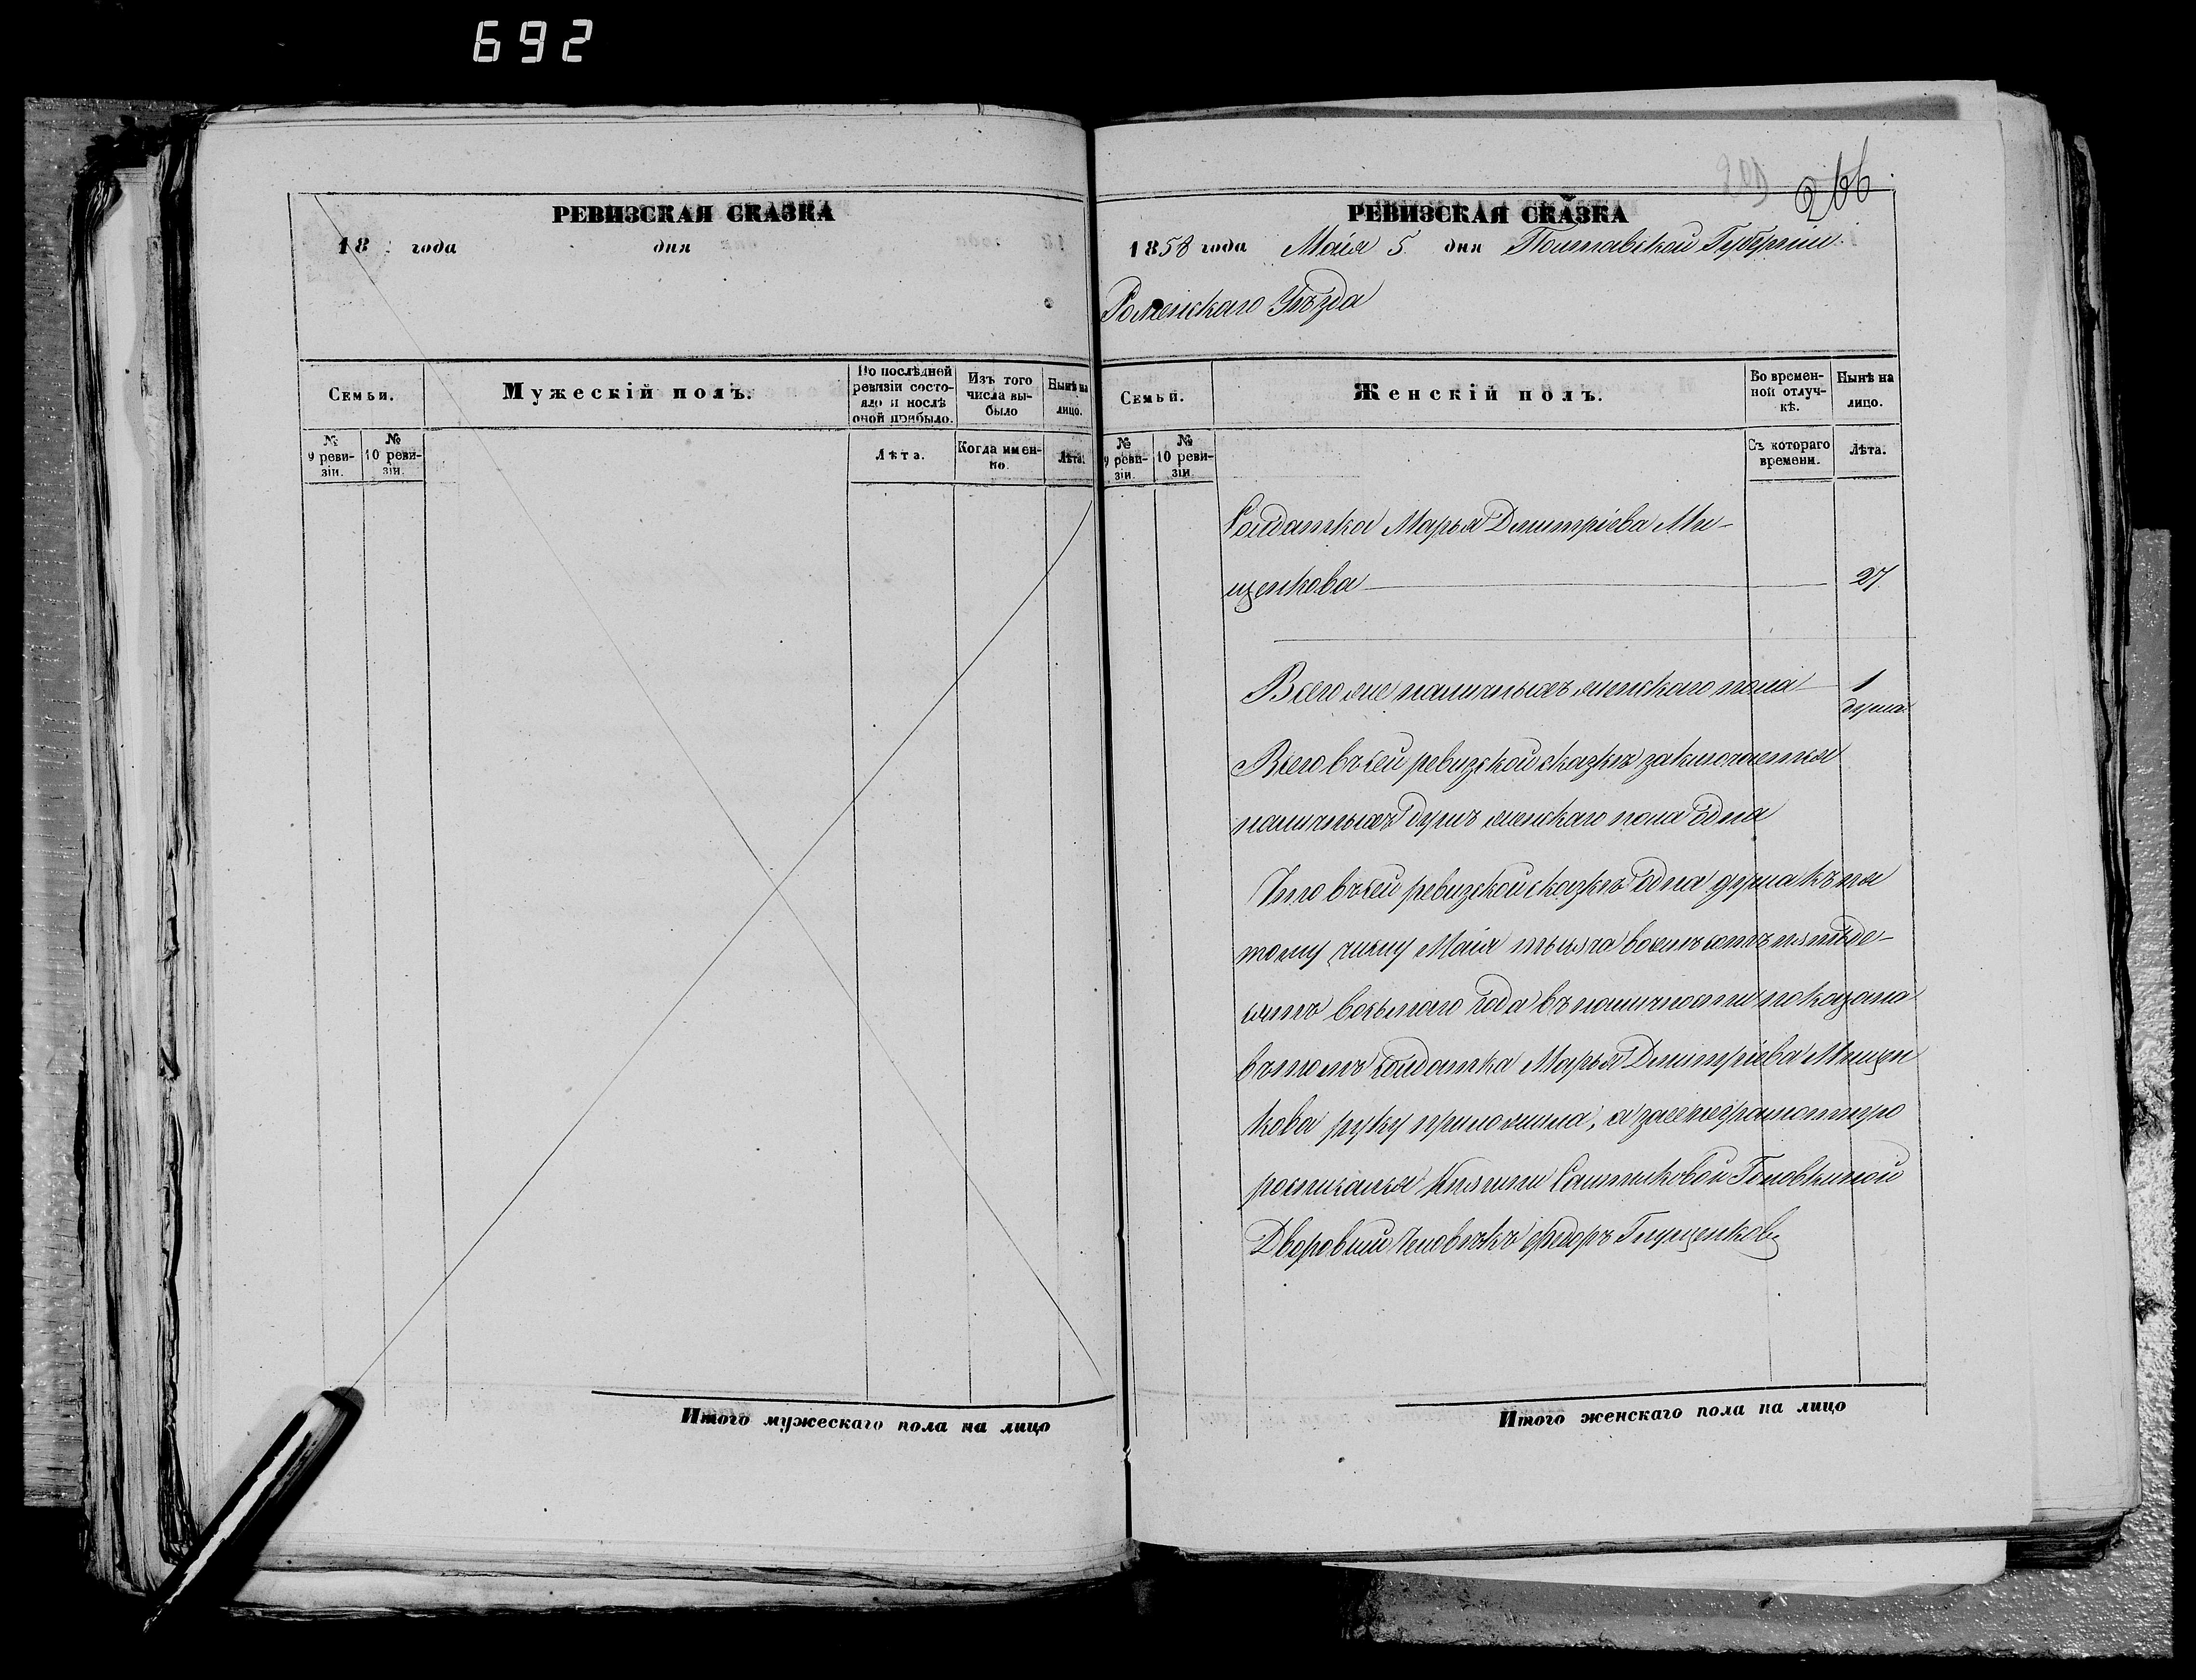 692
РЕВИЗСКАЯ СКАЗКА
18 года дня
Семьи.
Мужескій полъ.
По послѣдней ревизіи состояло и послѣ оной прибыло.
Изъ того числа выбыло
Нынѣ на лицо.
№ 9 ревизіи.
№ 10 ревизіи.
Лѣта.
Когда именно.
Лѣта.
Итого мужескаго пола на лицо
209 266
РЕВИЗСКАЯ СКАЗКА
1858 года Маія 5 дня Полтавской Губерніи
Роменскаго Уѣзда
Семьи.
Женскій полъ.
Во временной отлучкѣ.
Нынѣ на лицо.
№ 9 ревизіи.
№ 10 ревизіи
Съ котораго времени.
Лѣта.
Солдатка Марья Дмитріева Ми-
щенкова 27
Всего же наличныхъ женскаго пола 1 душа
Всего въ сей ревизской сказкѣ заключается
наличныхъ душъ женскаго пола одна
Что въ сей ревизской сказкѣ одна душа къ пя
тому числу Маія тысяча восемь сотъ пятьде-
сятъ восьмого года въ наличности показана
въ томъ солдатка Марья Дмитріева Мищен
кова руку приложила, а за ее неграмотную
росписался Княгини Салтиковой Головкиной
Дворовый Человѣкъ Федоръ Глущенковъ
Итого женскаго пола на лицо